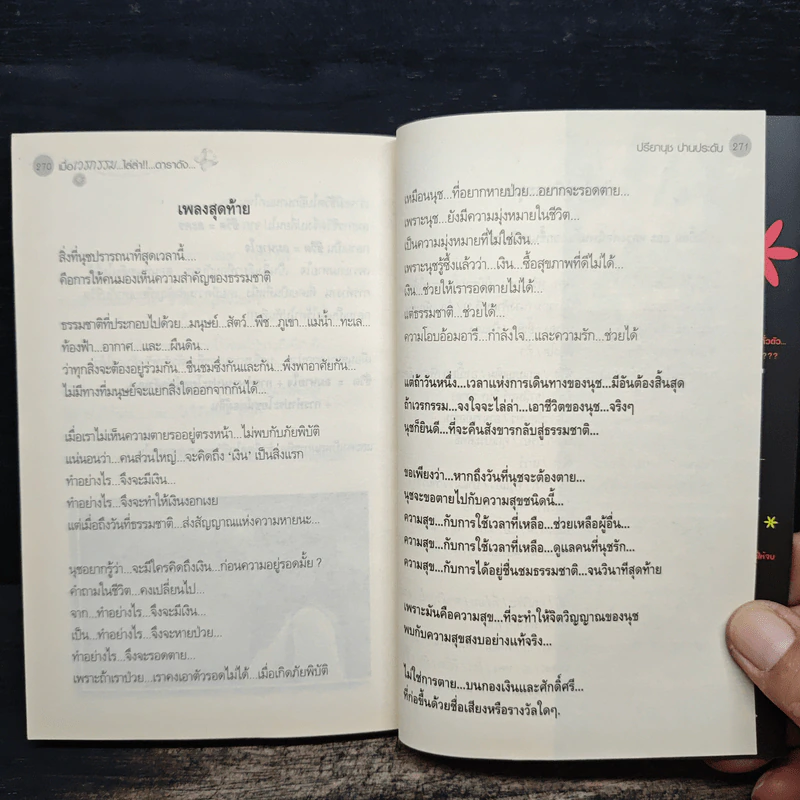 270 เมื่อเวรกรรม...ไล่ล่า!!...ดาราดัง...
เพลงสุดท้าย
สิ่งที่นุชปรารถนาที่สุดเวลานี้....
คือการให้คนมองเห็นความสำคัญของธรรมชาติ
ธรรมชาติที่ประกอบไปด้วย...มนุษย์...สัตว์...พืช...ภูเขา...แม่น้ำ...ทะเล...
ท้องฟ้า...อากาศ...และ...ผืนดิน...
ว่าทุกสิ่งจะต้องอยู่ร่วมกัน...ชื่นชมซึ่งกันและกัน...พึ่งพาอาศัยกัน...
ไม่มีทางที่มนุษย์จะแยกสิ่งใดออกจากกันได้...
เมื่อเราไม่เห็นความตายรออยู่ตรงหน้า...ไม่พบกับภัยพิบัติ
แน่นอนว่า...คนส่วนใหญ่...จะคิดถึง ‘เงิน’ เป็นสิ่งแรก
ทำอย่างไร...จึงจะมีเงิน...
ทำอย่างไร...จึงจะทำให้เงินงอกเงย
แต่เมื่อถึงวันที่ธรรมชาติ...ส่งสัญญาณแห่งความหายนะ...
นุชอยากรู้ว่า...จะมีใครคิดถึงเงิน...ก่อนความอยู่รอดมั้ย ?
คำถามในชีวิต...คงเปลี่ยนไป...
จาก...ทำอย่างไร...จึงจะมีเงิน...
เป็น...ทำอย่างไร...จึงจะหายป่วย...
ทำอย่างไร...จึงจะรอดตาย...
เพราะถ้าเราป่วย...เราคงเอาตัวรอดไม่ได้...เมื่อเกิดภัยพิบัติ
ปรียานุช ปานประดับ 271
เหมือนนุช...ที่อยากหายป่วย...อยากจะรอดตาย...
เพราะนุช...ยังมีความมุ่งหมายในชีวิต...
เป็นความมุ่งหมายที่ไม่ใช่เงิน...
เพราะนุชรู้ซึ้งแล้วว่า...เงิน...ซื้อสุขภาพที่ดีไม่ได้...
เงิน...ช่วยให้เรารอดตายไม่ได้...
แต่ธรรมชาติ...ช่วยได้...
ความโอบอ้อมอารี...กำลังใจ...และความรัก...ช่วยได้
แต่ถ้าวันหนึ่ง...เวลาแห่งการเดินทางของนุช...มีอันต้องสิ้นสุด
ถ้าเวรกรรม...จงใจจะไล่ล่า...เอาชีวิตของนุช...จริงๆ
นุชก็ยินดี...ที่จะคืนสังขารกลับสู่ธรรมชาติ...
ขอเพียงว่า...หากถึงวันที่นุชจะต้องตาย...
นุชจะขอตายไปกับความสุขชนิดนี้...
ความสุข...กับการใช้เวลาที่เหลือ...ช่วยเหลือผู้อื่น...
ความสุข...กับการใช้เวลาที่เหลือ...ดูแลคนที่นุชรัก...
ความสุข...กับการได้อยู่ชื่นชมธรรมชาติ...จนวินาทีสุดท้าย
เพราะมันคือความสุข...ที่จะทำให้จิตวิญญาณของนุช
พบกับความสุขสงบอย่างแท้จริง...
ไม่ใช่การตาย...บนกองเงินและศักดิ์ศรี...
ที่ก่อขึ้นด้วยชื่อเสียงหรือรางวัลใดๆ.
???